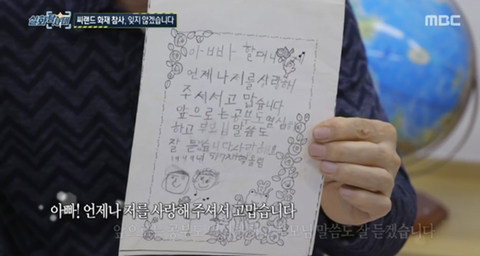 실화탐사대
씨랜드 화재 참사, 잊지 않겠습니다
MBC
아빠 할머니
언제나 저를 사랑해
주셔서 고맙습니다
앞으로는 공부도 열심
하고 부모님 말씀도
잘 듣습니다 사랑해요
1999년
아빠! 언제나 저를 사랑해 주셔서 고맙습니다
말씀도 잘 듣겠습니다